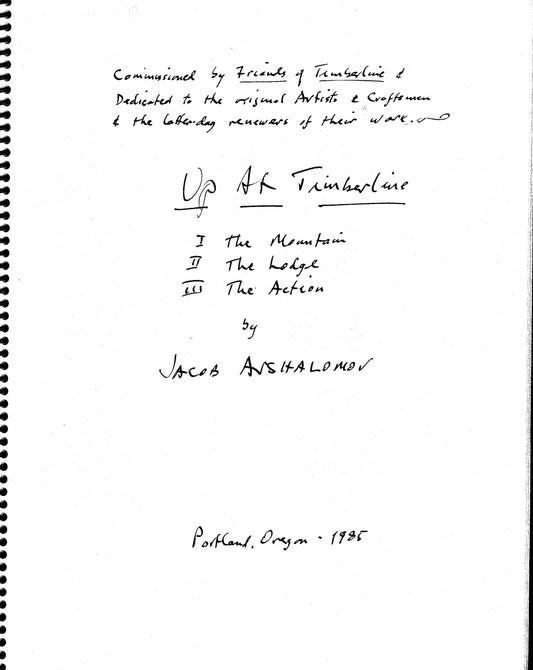 Commissioned by Friends of Timberline &
Dedicated to the original Artists & Craftsmen
& the latter-day renewers of their work.
Up At Timberline
I The Mountain
II The Lodge
III The Action
by
JACOB AVSHALOMOV
Portland, Oregon - 1985